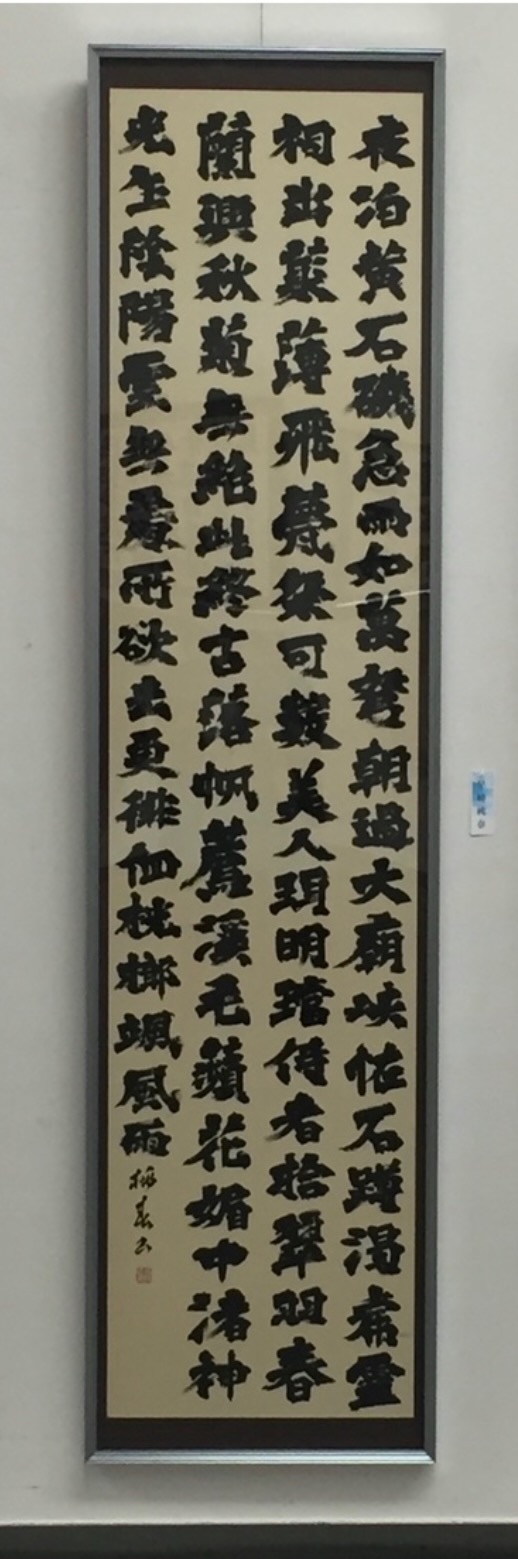 夜泊黄石磯急雨如萬弩朝過大廟峡怪石蹲渇虎靈
祠出叢薄飛甍粲可数美人珥明璫侍者拾翠羽春
蘭與秋菊無絶此終古落帆薦溪毛蘋花媚中渚神
光陰陽雲無處所欲去更徘徊桄榔颯風雨